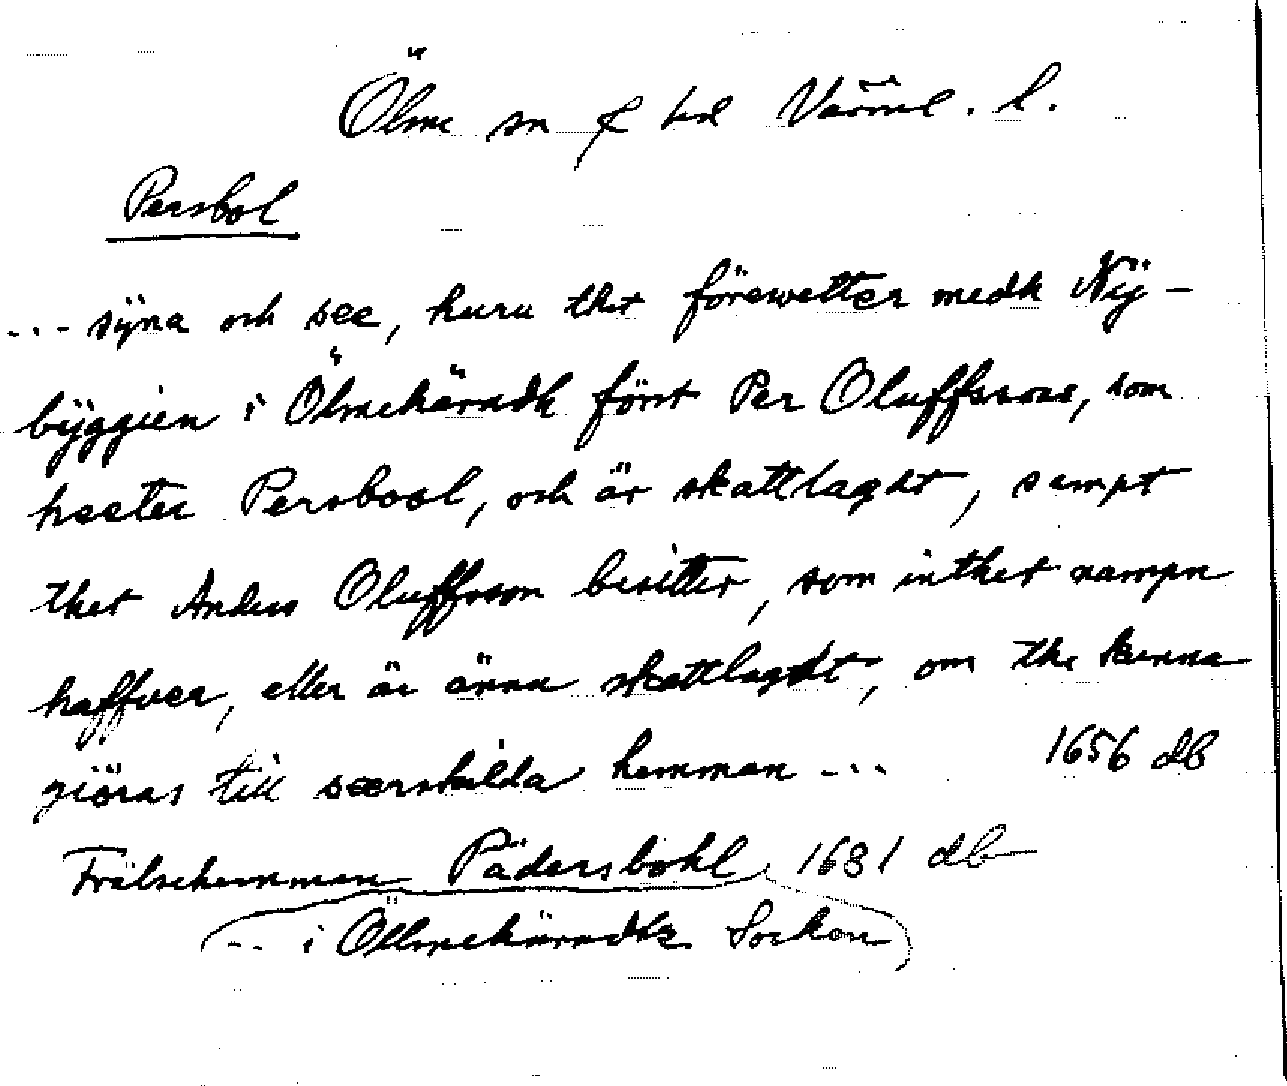 Ölme sn o hd Värml. l.
Persbol
... sÿna och see, huru thet förewetter medh Nÿ-
bÿggien i Ölmehäradh förit Per Oluffssons, som
heeter Persbool, och är skattlaght, sampt
thet Anders Oluffsson besitter, som inthet nampn
haffver, eller är ännu skattlaght, om the kunna
giöras till særskilda hemman ... 1656 db
Frälsehemman Pädersbohl 1681 db
(... i Öllmehäradz Sockn)